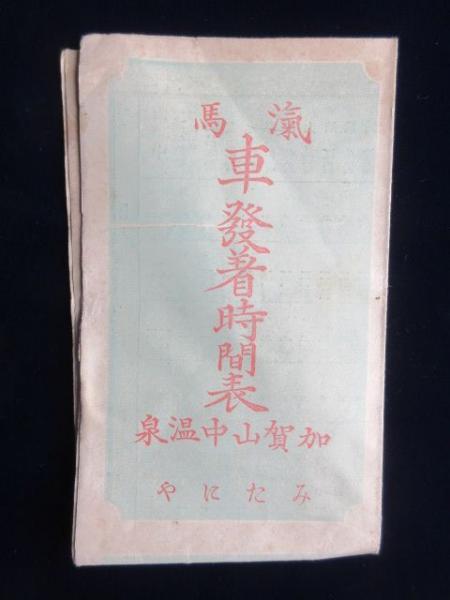 滊馬
車發着時間表
加賀山中温泉
みたにや